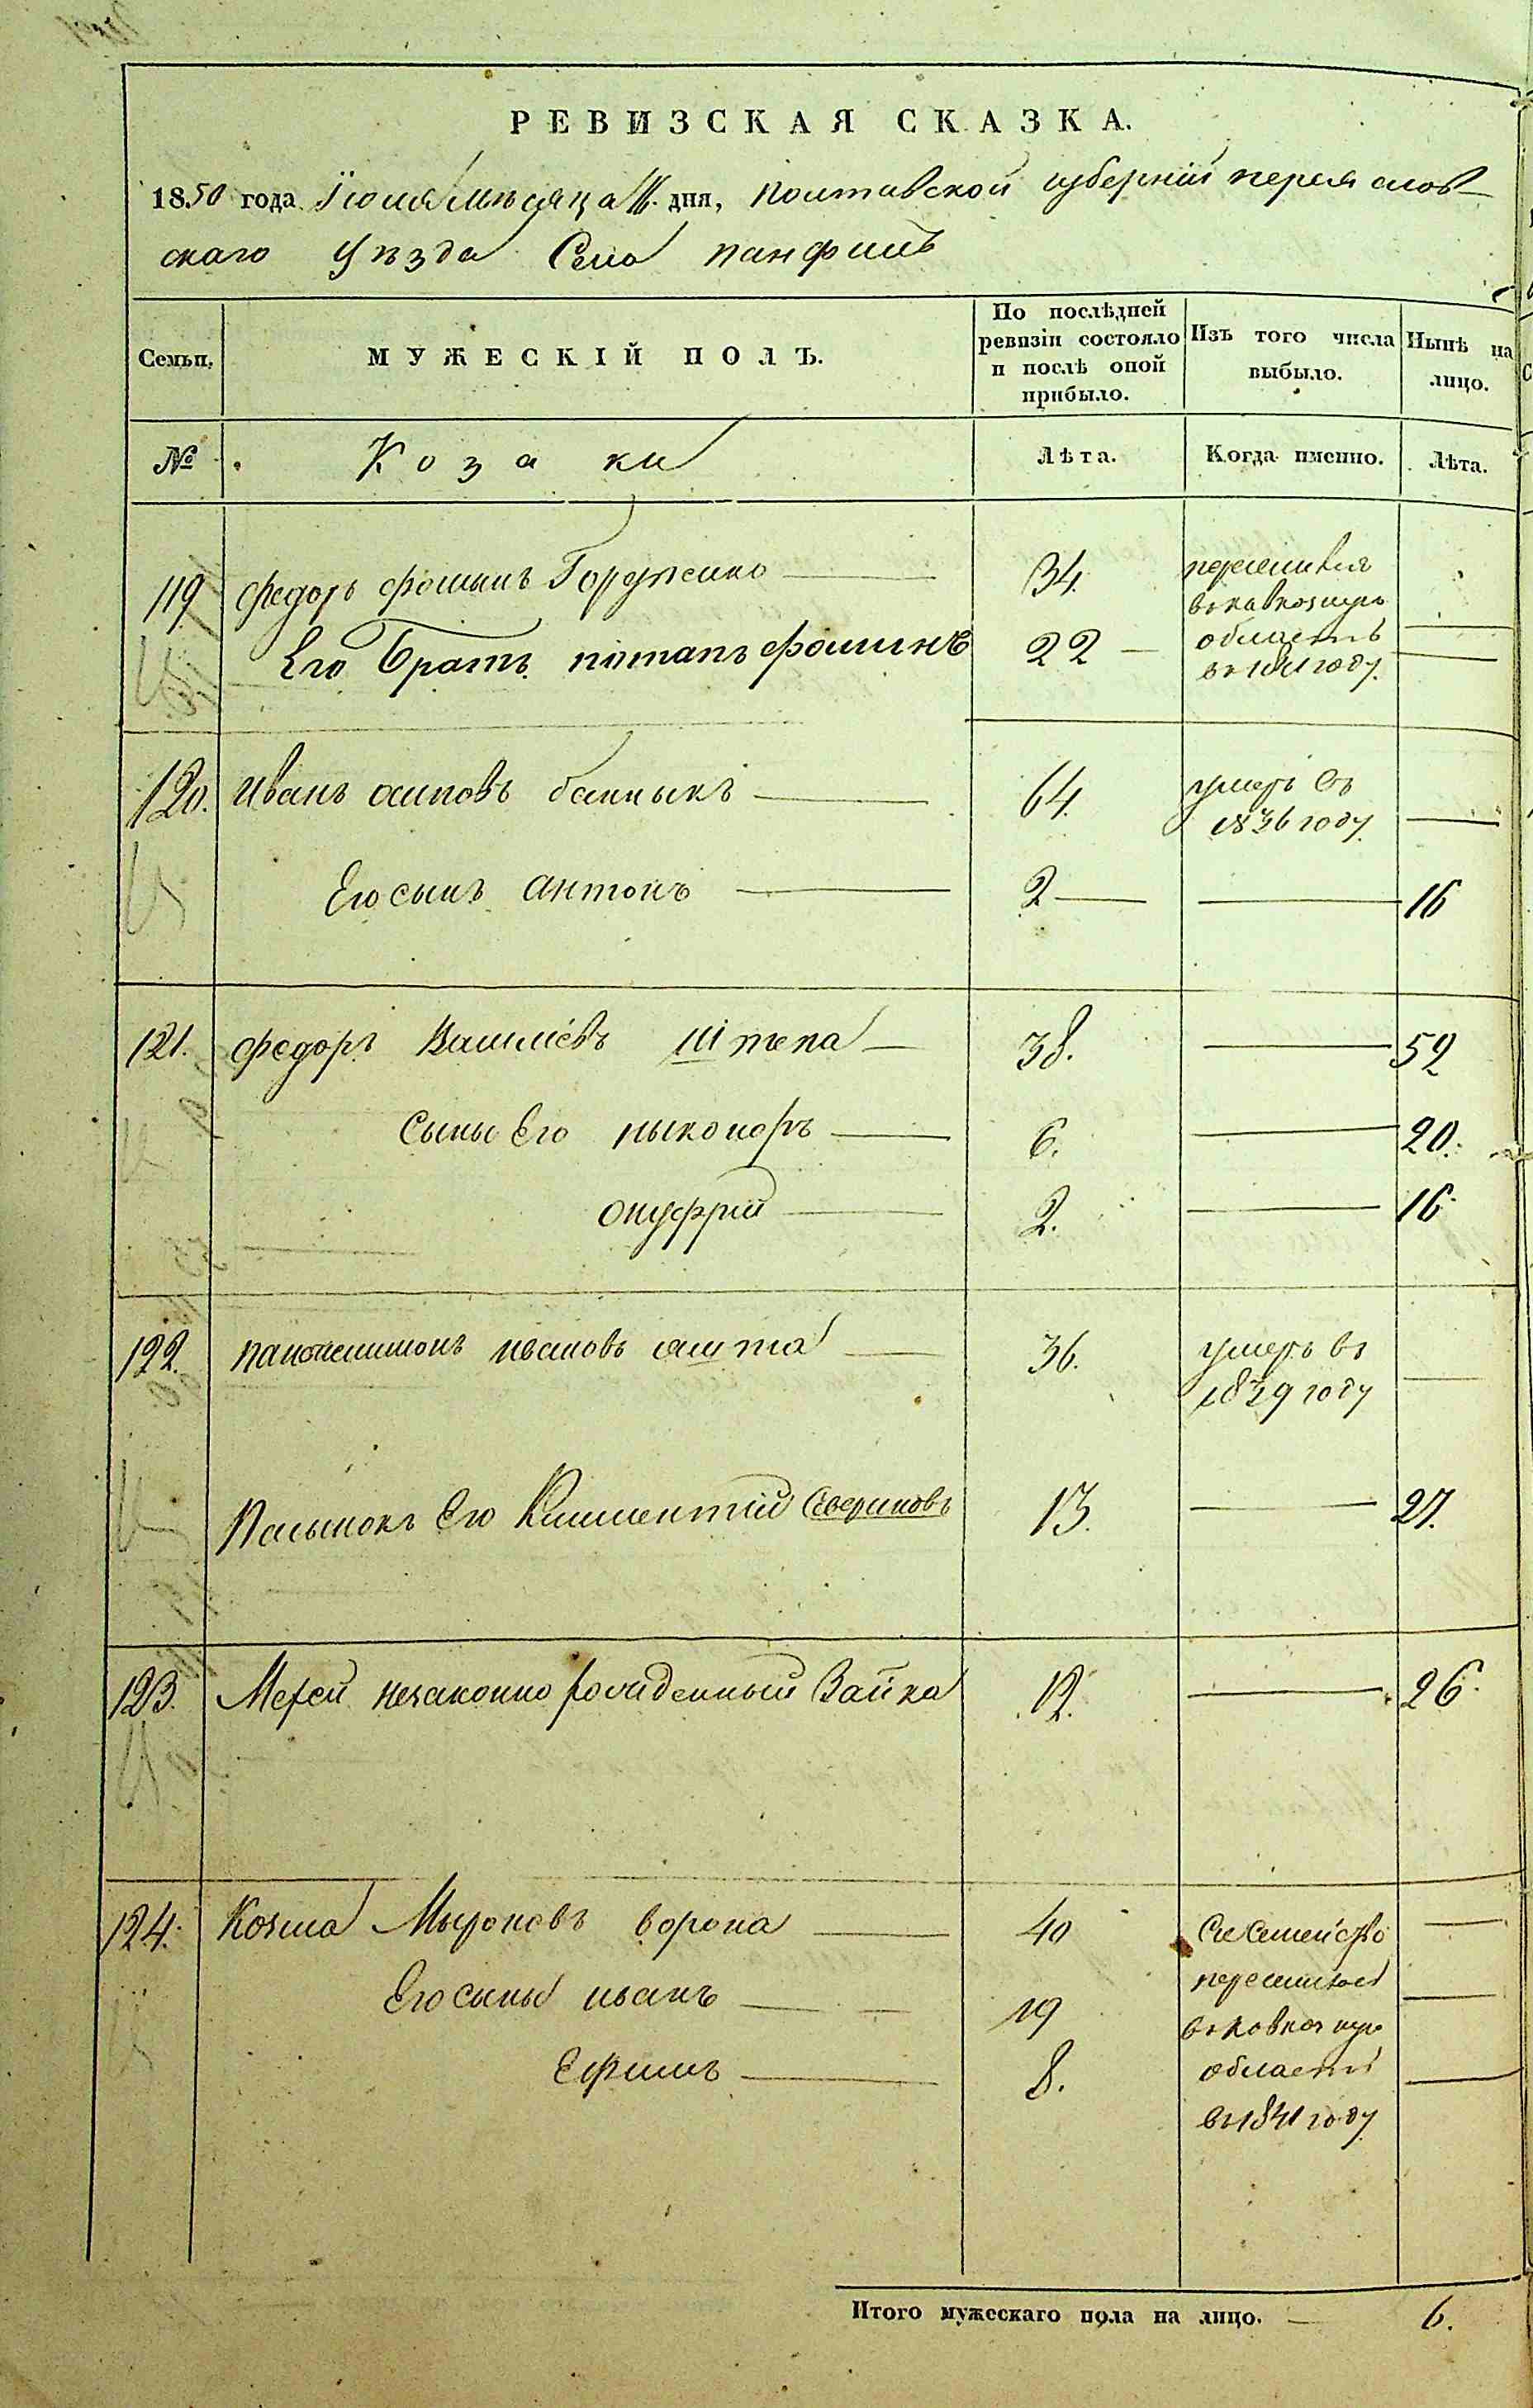 РЕВИЗСКАЯ СКАЗКА.
1850 года Іюля мѣсяца дня, Полтавской губерніи переяслов-
скаго уѣзда Села панфилъ
Семьи. МУЖЕСКІЙ ПОЛЪ. По послѣдней ревизіи состояло и послѣ оной прибыло. Изъ того числа выбыло. Нынѣ на лицо.
№ Козаки Лѣта. Когда именно. Лѣта.
119 федоръ фоминъ Гордѣенко 34. переселился
в кавказкую
Его Братъ потапъ фоминъ 22 область
в 1841 году.
120. иванъ осиповъ банныкъ 64. умеръ въ
1836 году
Его сынъ антонъ 2 16
121. федоръ Василіевъ Штепа 38. 52
Сыны Его ныконоръ 6. 20.
онуфрій 2. 16
122. пантелимонъ ивановъ 36. умеръ въ
1839 году
Пасынокъ Его Климентій Севериновъ 13. 27.
123. незаконно рожденный Зайка 12. 26.
124. Козма Мыроновъ ворона 40 Сие Семейство
переселилось
Его сыны иванъ 19 в Кавказкую
Ефимъ 8. область
въ 1841 году
Итого мужескаго пола на лицо. 6.